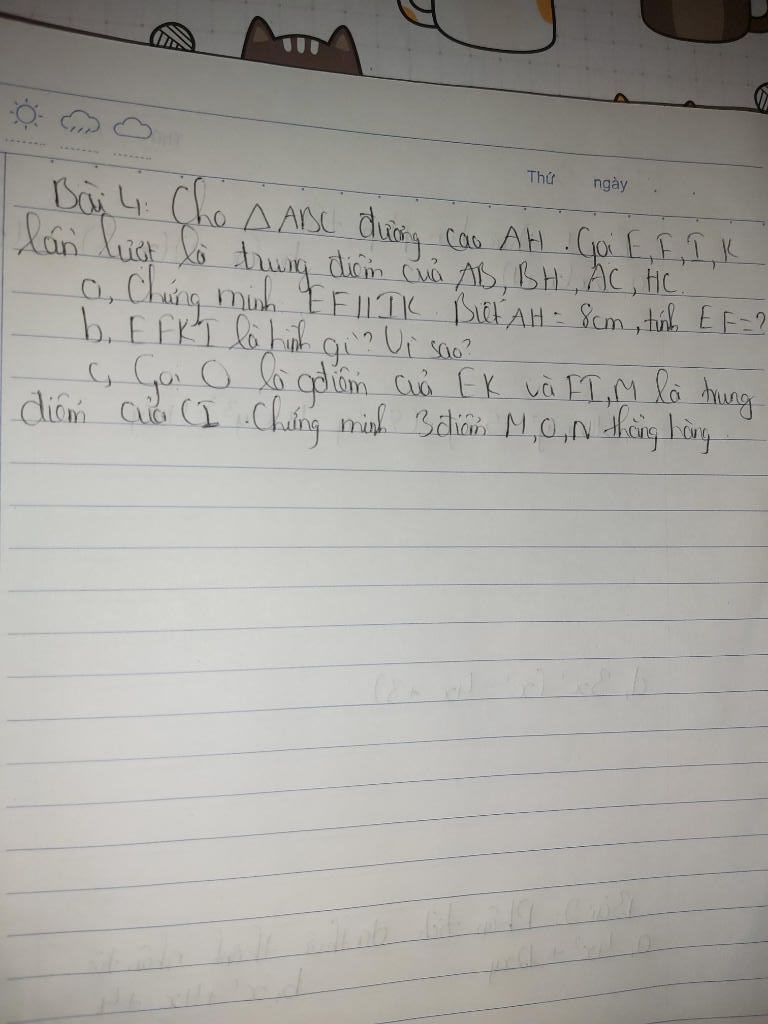 Thứ ngày
Bài 4: Cho △ABC đường cao AH. Gọi E, F, I, K
lần lượt là trung điểm của AB, BH, AC, HC.
a, Chứng minh EF//IK. Biết AH = 8cm, tính EF=?
b, EFKI là hình gì? Vì sao?
c, Gọi O là gđiểm của EK và FI, M là trung
điểm của CI. Chứng minh 3 điểm M, O, N thẳng hàng